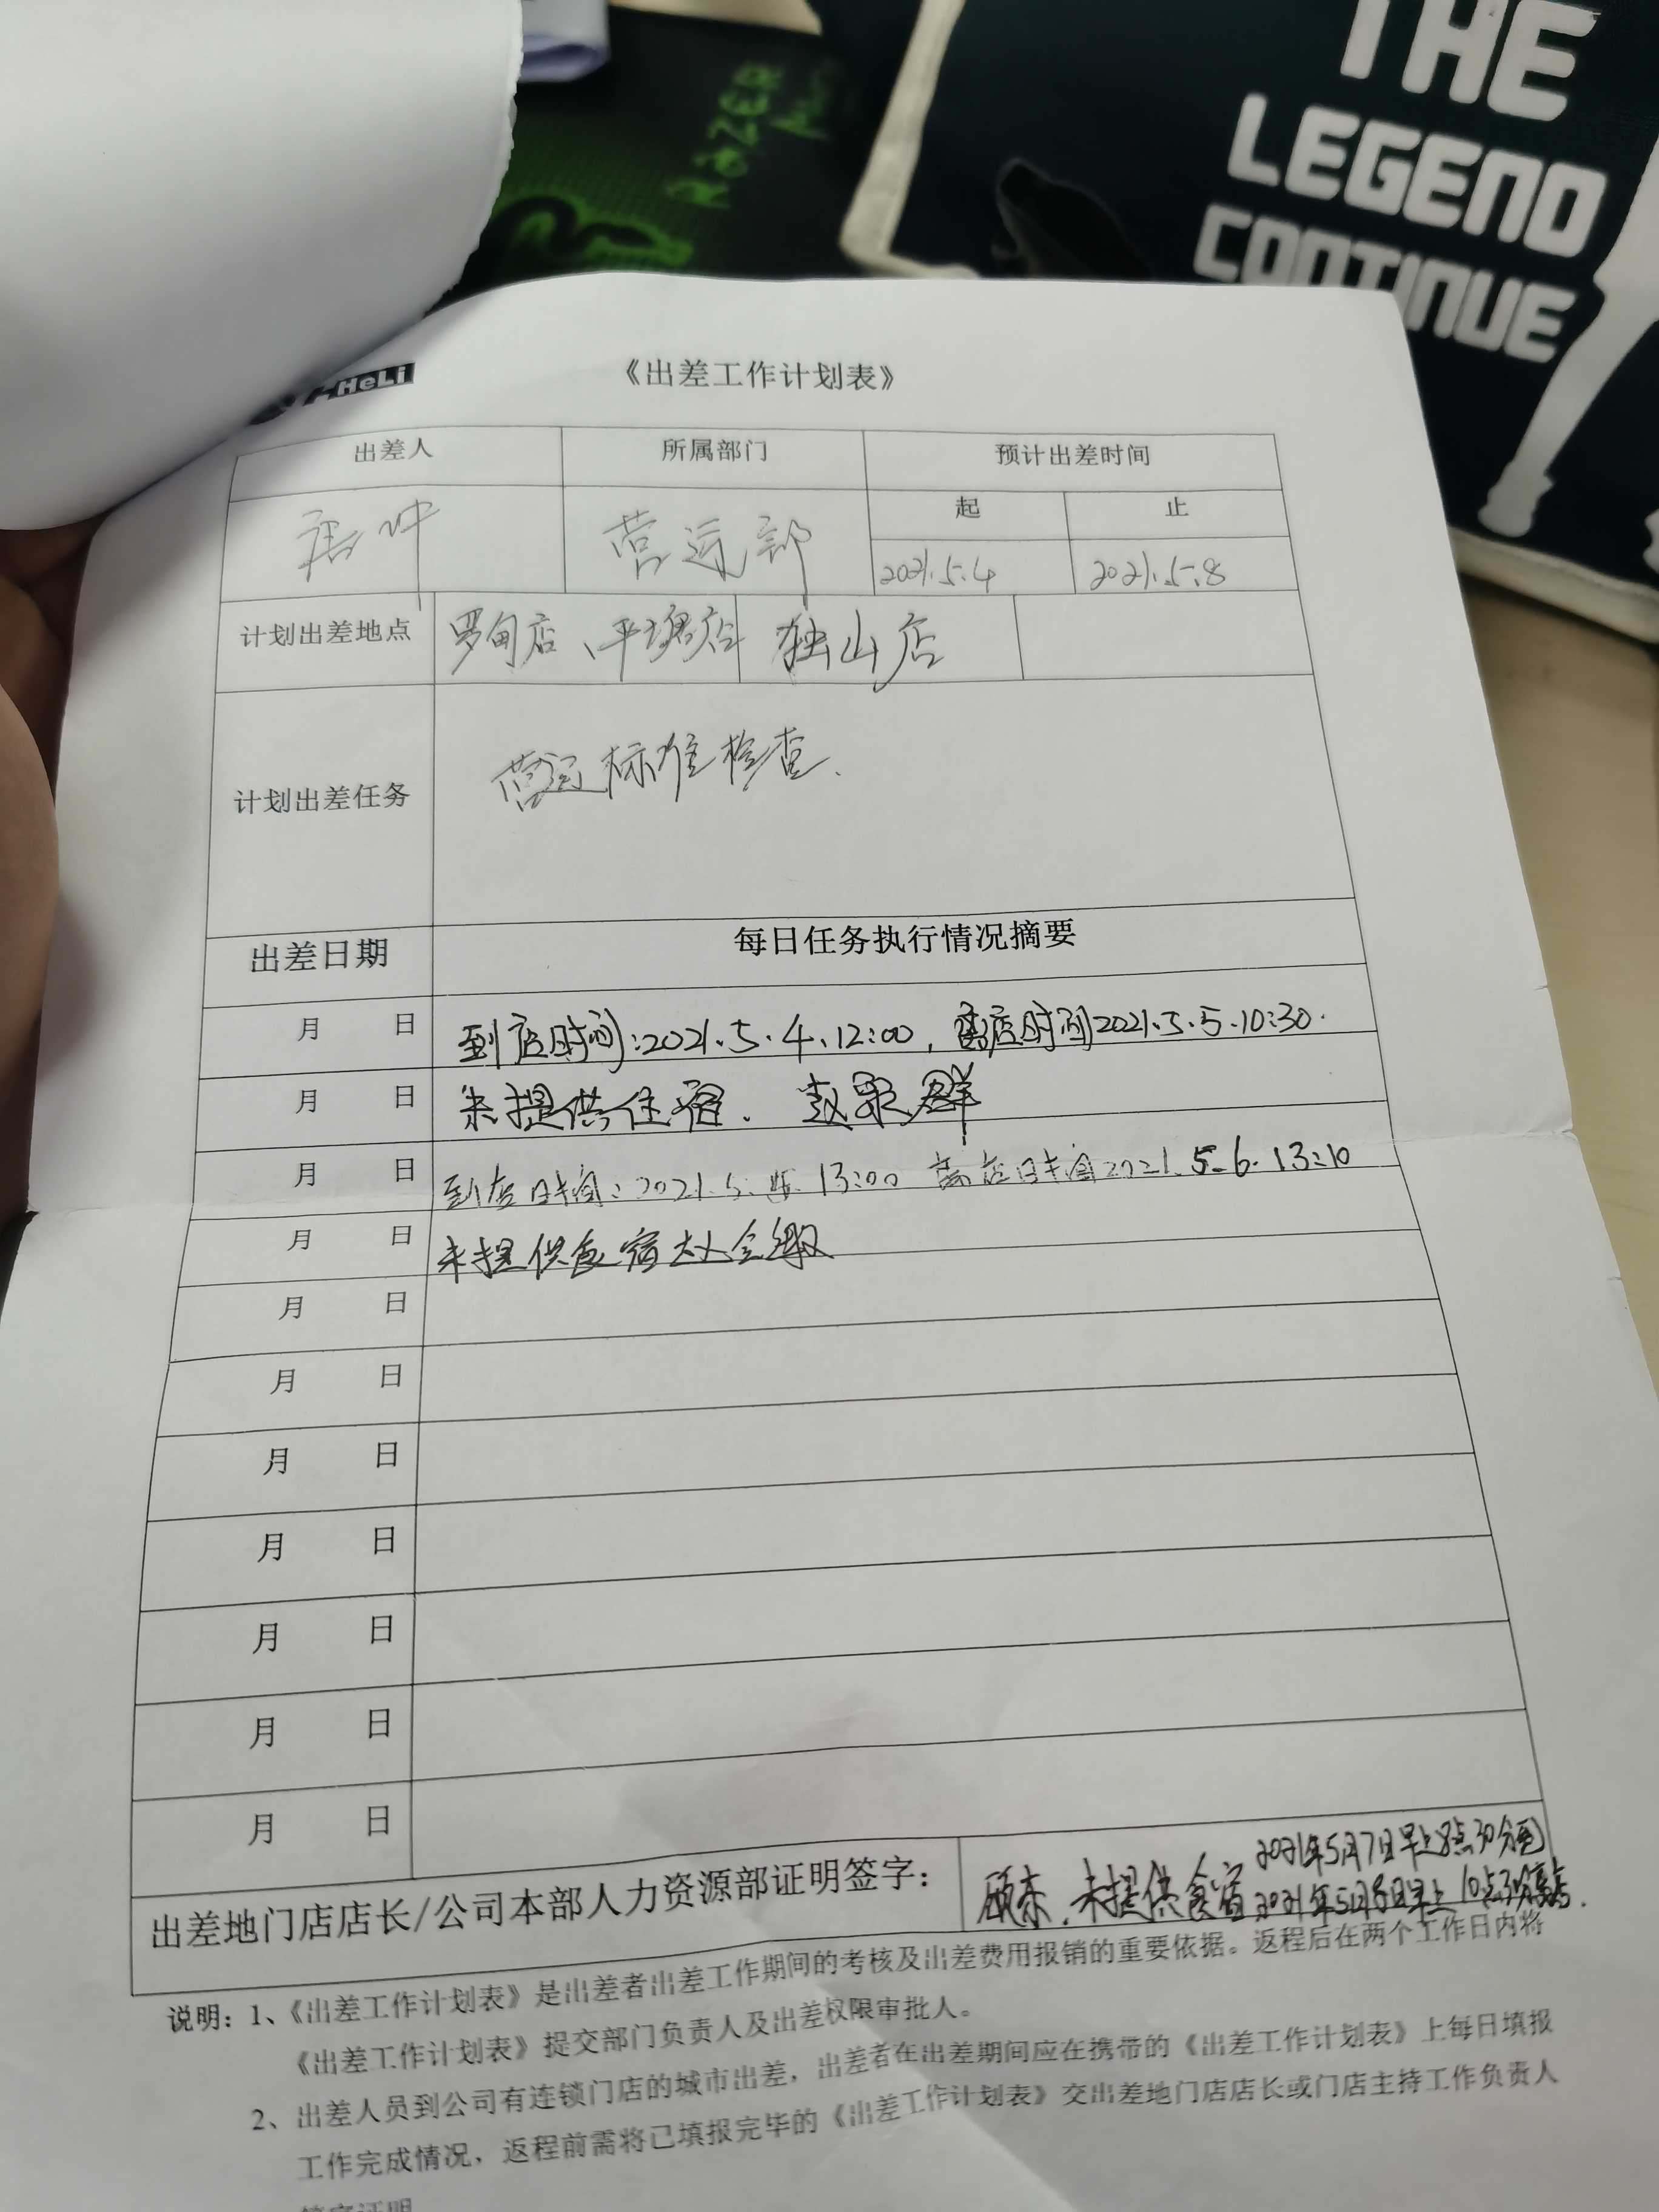 RAZER
THE
LEGEND
CONTINUE
HeLi
《出差工作计划表》
出差人 所属部门 预计出差时间
起 止
唐冲 营运部 2021.5.4 2021.5.8
计划出差地点 罗甸店、平塘店 独山店
计划出差任务 营运标准检查.
出差日期 每日任务执行情况摘要
月 日 到店时间:2021.5.4.12:00,离店时间2021.5.5.10:30.
月 日 未提供住宿.
月 日 到店时间:2021.5. 13:00 离店时间2021.5.6.13:10
月 日 未提供食宿
月 日
月 日
月 日
月 日
月 日
月 日
月 日
出差地门店店长/公司本部人力资源部证明签字: 未提供食宿 2021年5月7日早上8点30分到
2021年5月8日早上10点30分离店.
说明:1、《出差工作计划表》是出差者出差工作期间的考核及出差费用报销的重要依据。返程后在两个工作日内将
《出差工作计划表》提交部门负责人及出差权限审批人。
2、出差人员到公司有连锁门店的城市出差,出差者在出差期间应在携带的《出差工作计划表》上每日填报
工作完成情况,返程前需将已填报完毕的《出差工作计划表》交出差地门店店长或门店主持工作负责人
签字证明